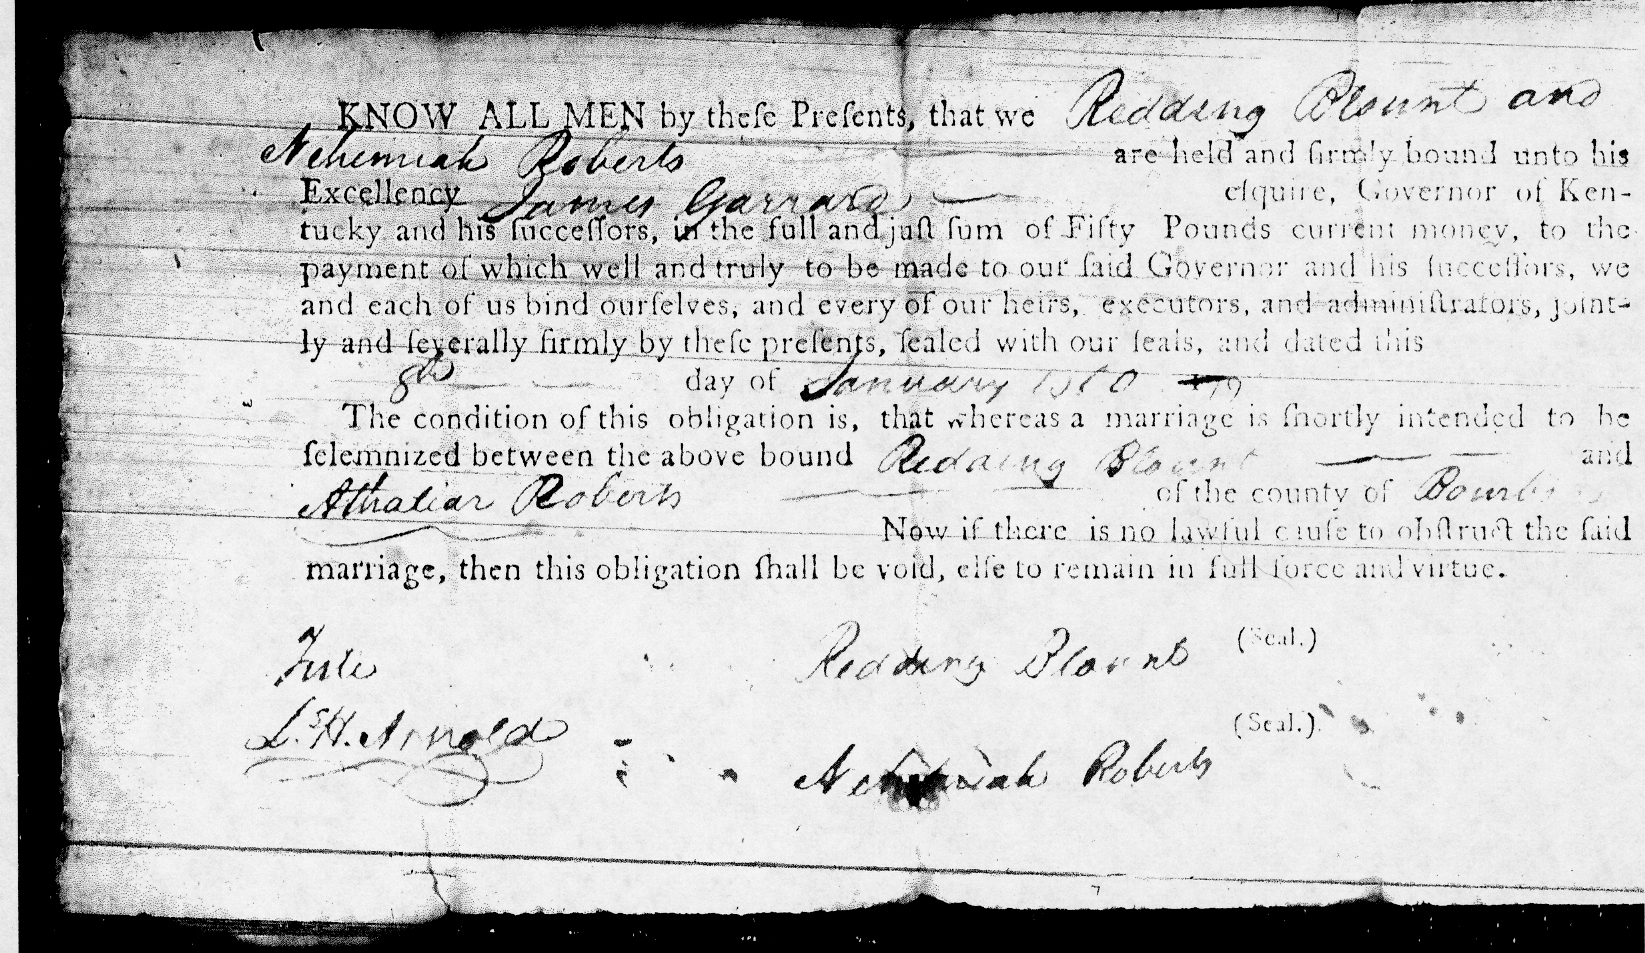 KNOW ALL MEN by theſe Preſents, that we Redding Blount and
Nehemiah Roberts are held and firmly bound unto his
Excellency James Garrard eſquire, Governor of Ken-
tucky and his ſucceſſors, in the full and juſt ſum of Fifty Pounds current money, to the
payment of which well and truly to be made to our ſaid Governor and his ſucceſſors, we
and each of us bind ourſelves, and every of our heirs, executors, and adminiſtrators, joint-
ly and ſeverally firmly by theſe preſents, ſealed with our ſeals, and dated this
8th day of January 1800 179
The condition of this obligation is, that whereas a marriage is ſhortly intended to be
ſelemnized between the above bound Redding Blount and
Athaliar Roberts of the county of Bourbon
Now if there is no lawful cauſe to obſtruct the ſaid
marriage, then this obligation ſhall be void, elſe to remain in full force and virtue.
Redding Blount (Seal.)
L.sH. Arnold (Seal.)
Nehemiah Roberts